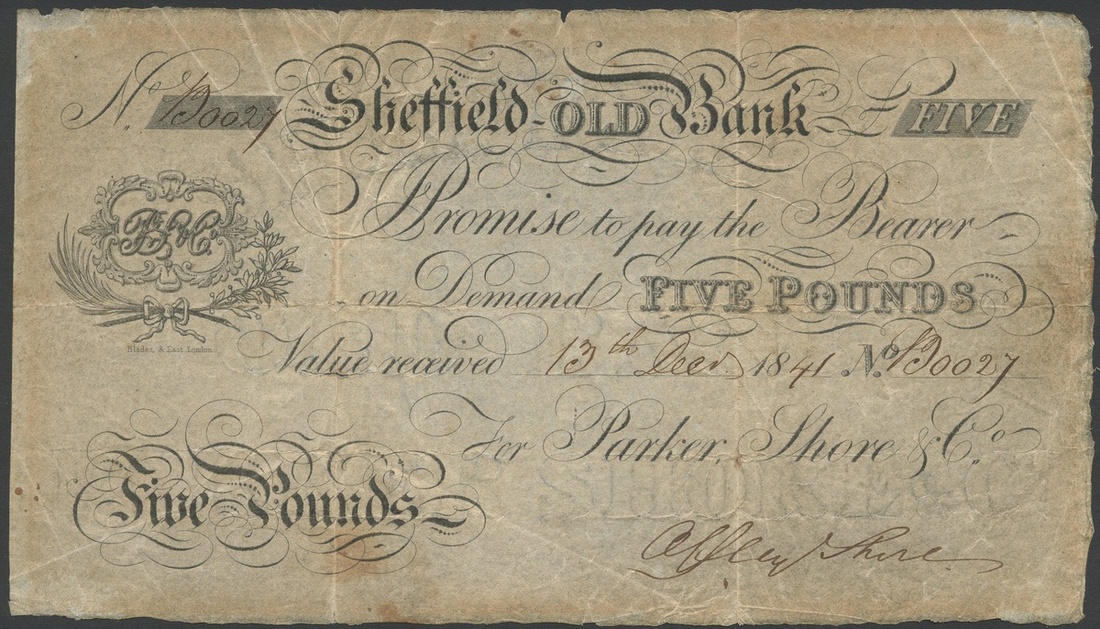 No. B0027 Sheffield OLD Bank £ FIVE
I Promise to pay the Bearer
on Demand FIVE POUNDS
PS&Co.
Blades, & East, London.
Value received 13th Decr 1841 No. B0027
For Parker, Shore & Co.
Five Pounds
Offley Shore